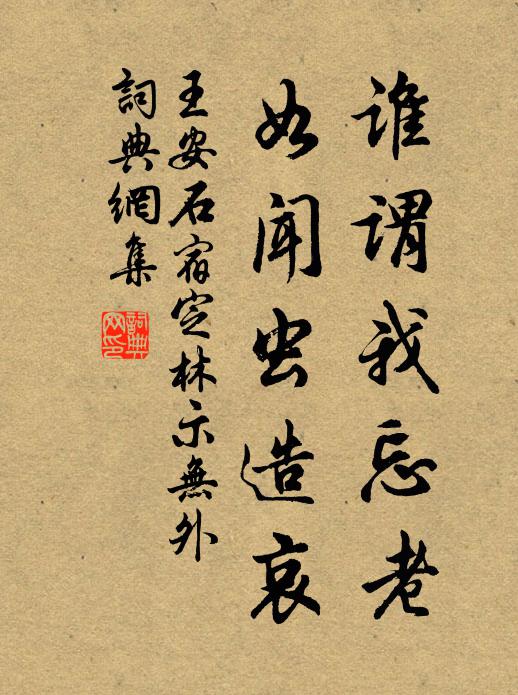 誰謂我忘老
如聞虫造哀
王安石宿定林示無外
詞典網集
詞典網印